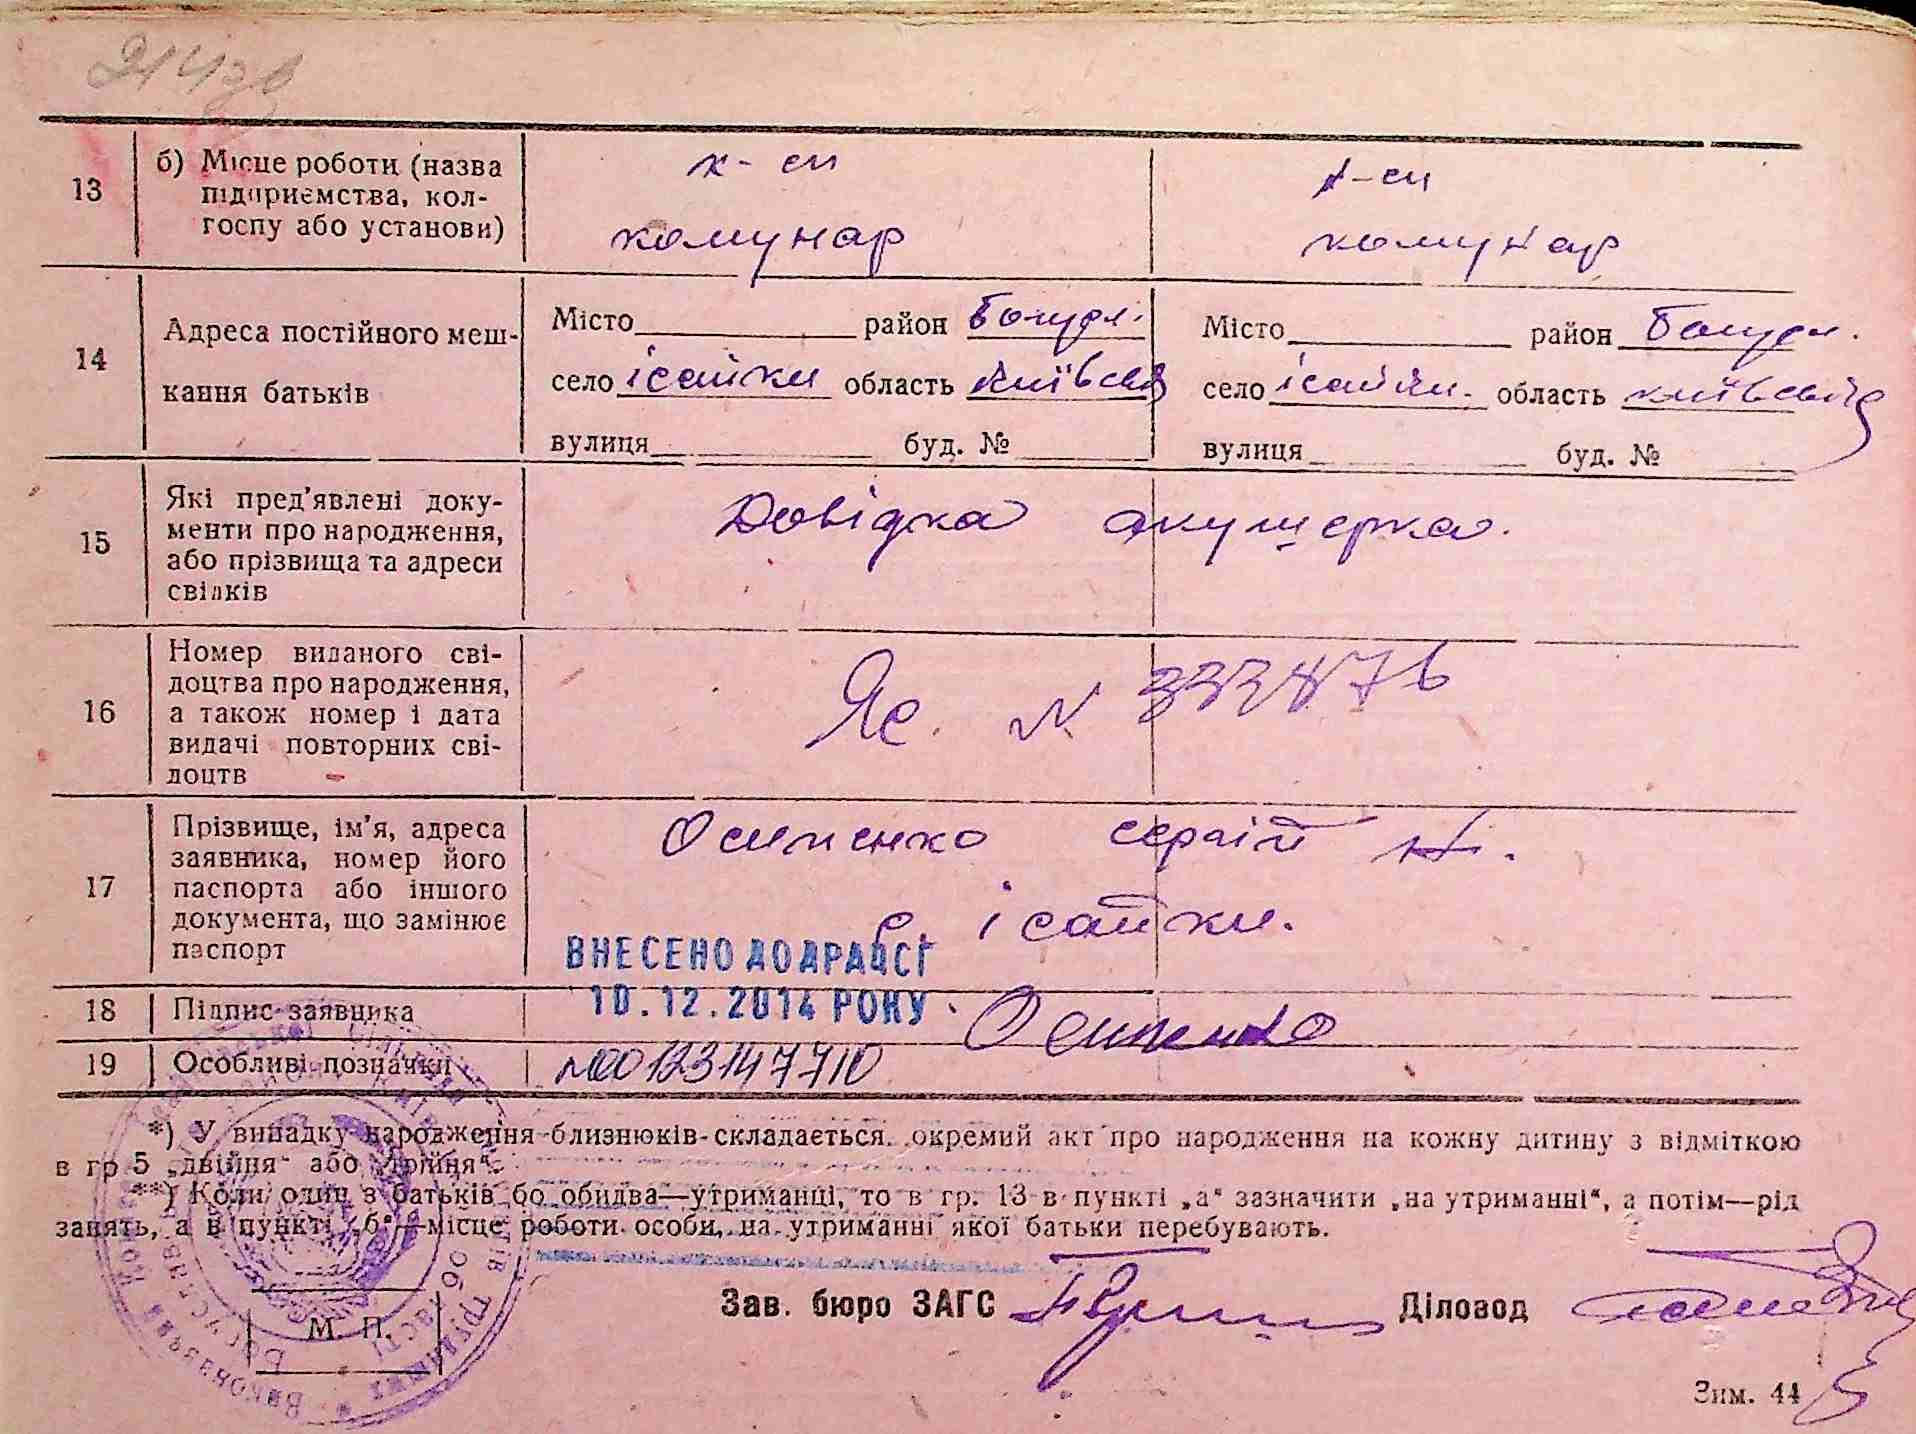 214зв
13
б) Місце роботи (назва
підприємства, кол-
госпу або установи)
к-сп
комунар
к-сп
комунар
14
Адреса постійного меш-
кання батьків
Місто район Богусл.
село ісайки область Київська
вулиця буд. №
Місто район Богусл.
село ісайки область київська
вулиця буд. №
15
Які пред'явлені доку-
менти про народження,
або прізвища та адреси
свідків
Довідка акушерка.
16
Номер виданого сві-
доцтва про народження,
а також номер і дата
видачі повторних сві-
доцтв
Яс. N 333876
17
Прізвище, ім'я, адреса
заявника, номер його
паспорта або іншого
документа, що замінює
паспорт
Осипенко сергій
с. ісайки.
ВНЕСЕНО ДО ДРАЦСГ
10.12.2014 РОКУ
18
Підпис заявника
Осипенко
19
Особливі позначки
№00123147710
*) У випадку народження близнюків складається окремий акт про народження на кожну дитину з відміткою
в гр 5 „двійня" або „трійня".
**) Коли один з батьків бо обидва—утриманці, то в гр. 13 в пункті „а" зазначити „на утриманні", а потім—рід
занять, а в пункті „б"—місце роботи особи, на утриманні якої батьки перебувають.
Зав. бюро ЗАГС
Діловод
М. П.
Зим. 44